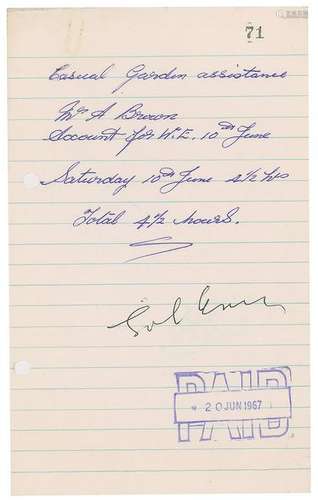 71
Casual Garden assistance
Mr A Brown
Account for W.E. 10TH June
Saturday 10th June 4½ hrs
Total 4½ hours.
PAID
20 JUN 1967